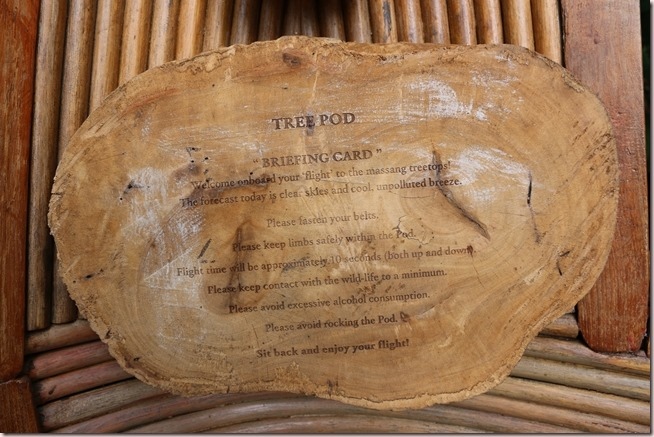 TREE POD
“ BRIEFING CARD ”
Welcome onboard your 'flight' to the massang treetops!
The forecast today is clear skies and cool, unpolluted breeze.
Please fasten your belts.
Please keep limbs safely within the Pod.
Flight time will be approximately 10 seconds (both up and down).
Please keep contact with the wild-life to a minimum.
Please avoid excessive alcohol consumption.
Please avoid rocking the Pod.
Sit back and enjoy your flight!